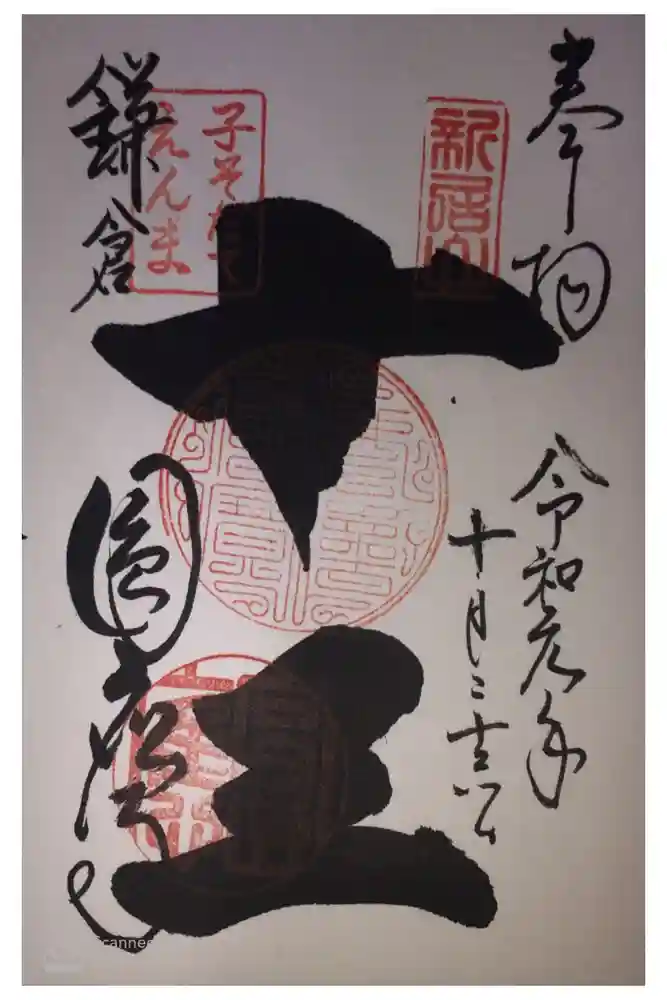 奉拝
令和元年
十月二十六日
新居山
十王
子そだて
えんま
鎌倉
圓應寺